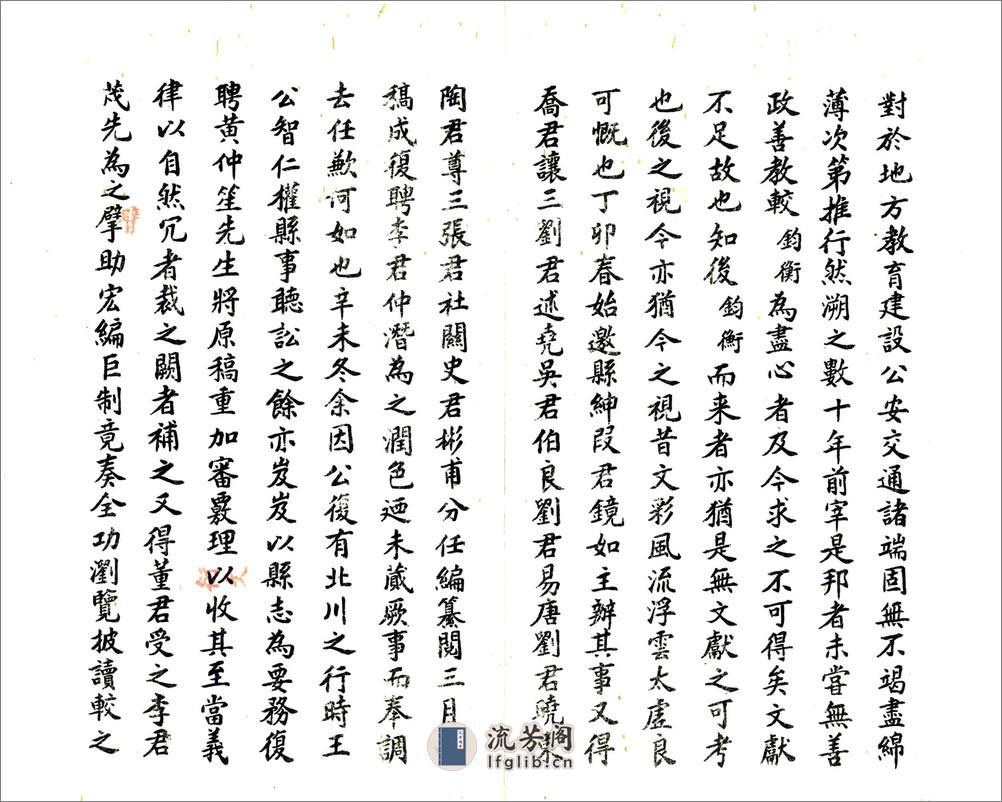 對於地方教育建設公安交通諸端固無不竭盡綿
薄次第推行然溯之數十年前宰是邦者未嘗無善
政善教較鈞衡為盡心者及今求之不可得矣文獻
不足故也知後鈞衡而来者亦猶是無文獻之可考
也後之視今亦猶今之視昔文彩風流浮雲太虛良
可慨也丁卯春始邀縣紳段君鏡如主辦其事又得
喬君讓三劉君述堯吳君伯良劉君易唐劉君曉
陶君尊三張君社關史君彬甫分任編纂閱三月
稿成復聘李君仲潛為之潤色迺未蕆厥事而奉調
去任歉何如也辛未冬余因公復有北川之行時王
公智仁權縣事聽訟之餘亦岌岌以縣志為要務復
聘黃仲笙先生將原稿重加審覈理以收其至當義
律以自然冗者裁之闕者補之又得董君受之李君
茂先為之擘助宏編巨制竟奏全功瀏覽披讀較之
流芳阁
lfglib.cn